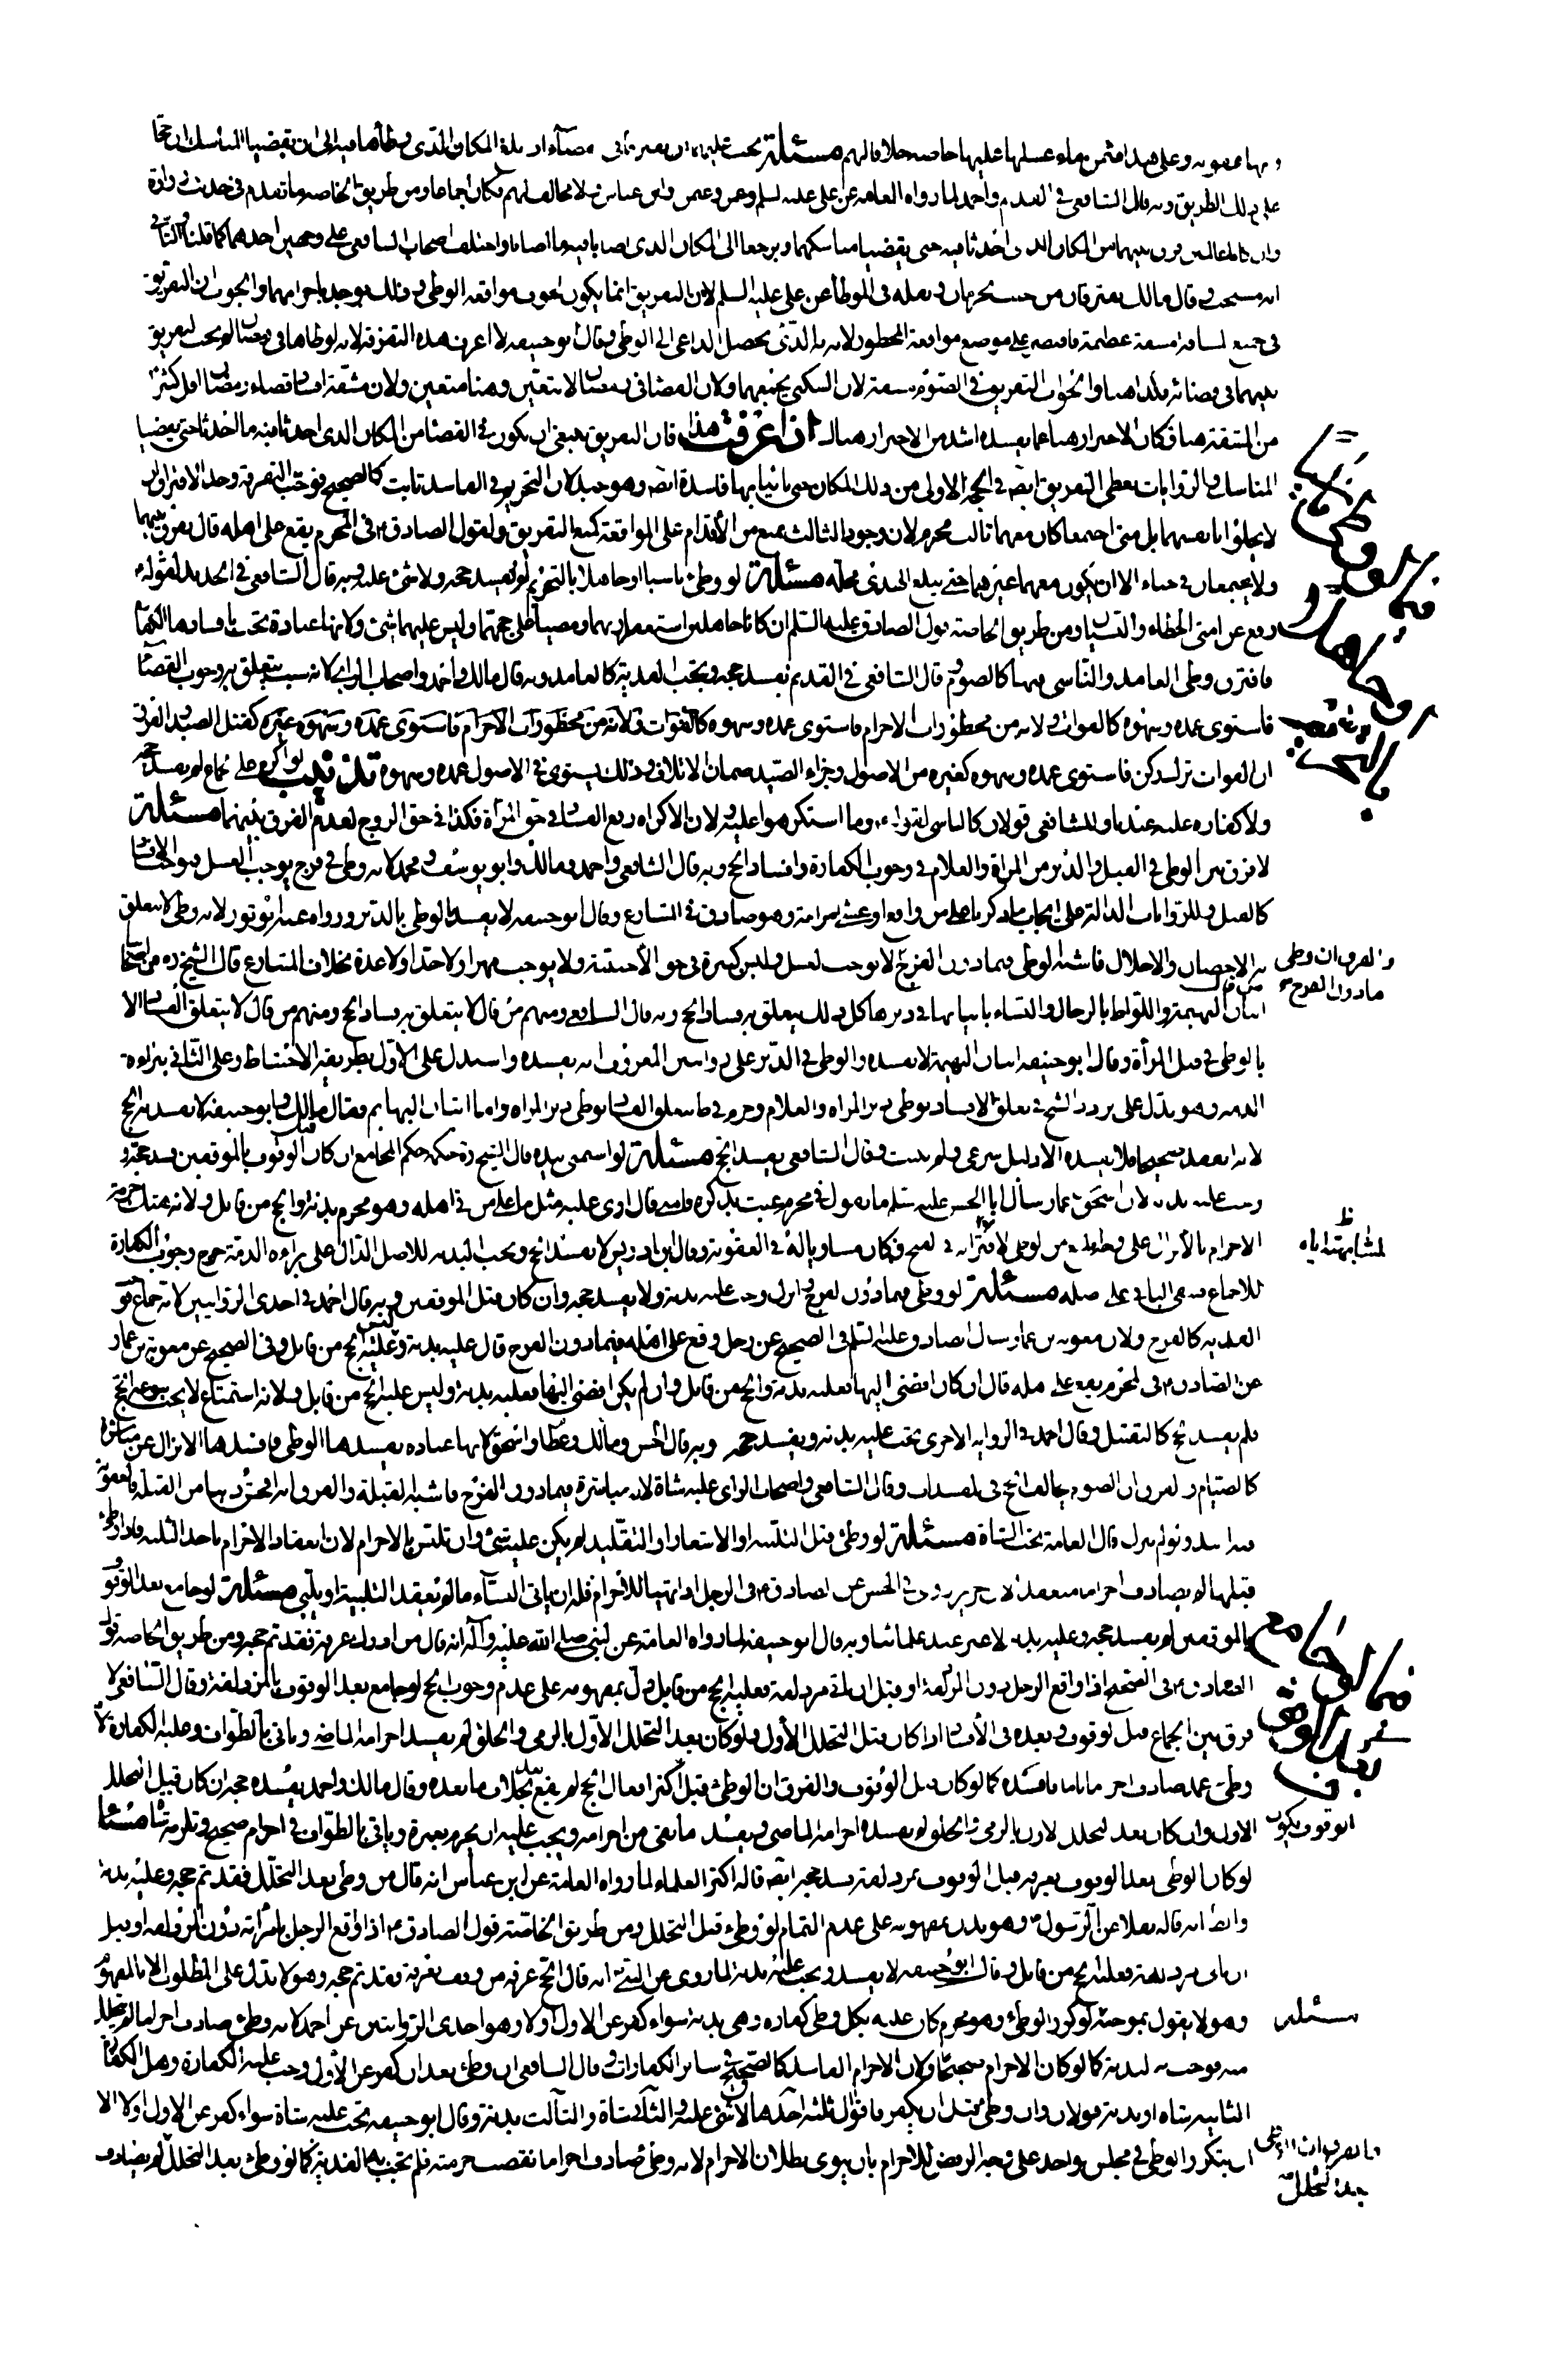 مسئلة يجب عليهما ان يفترقا في القضاء اذا بلغا المكان الذي وطأها فيه الى ان يقضيا المناسك ان حجا
على ذلك الطريق وبه قال الشافعي في القديم واحمد لما رواه العامة عن علي عليه السلم وعمر وابن عباس ولا مخالف لهم فكان اجماعا ومن طريق الخاصة ما تقدم في حديث زرارة
وان كانا عالمين فرق بينهما من المكان الذي احدثا فيه حتى يقضيا مناسكهما ويرجعا الى المكان الذي اصابا فيه ما اصابا واختلف اصحاب الشافعي على وجهين احدهما كما قلناه والثاني
انه مستحب وقال مالك يفترقان من حيث يحرمان ونقله في الموطأ عن علي عليه السلم لان التفريق انما يكون لخوف مواقعة الوطي وذلك يوجد باحرامهما والجواب ان التفريق
في جميع المسافة مشقة عظيمة فاقتصر على موضع مواقعة المحظور لانه الذي يحصل الداعي الى الوطي وقال ابو حنيفه لا اعرف هذه التفرقة لانه لو وطأها في رمضان لم يجب التفريق
بينهما في قضائه فكذا هنا والجواب التفريق في الصوم مشقة لان السكنى يجمعهما ولان القضاء في رمضان لا يتعين وهنا متعين ولان مشقة افساد قضاء رمضان اقل كثير
من المشقة هنا فكان الاحتراز هنا عما يفسده اشد من الاحتراز هناك اذا عرفت هذا فان التفريق ينبغي ان يكون في القضاء من المكان الذي احدثا فيه ما احدثا حتى يقضيا
المناسك والروايات يعطي التفريق ايضا في الحجة الاولى من ذلك المكان حتى ياتيا بها فاسدة ايضا وهو جيد لان التحريم في الفاسد ثابت كالصحيح فوجبت التفرقة وحد الافتراق ان
لا يخلوا بانفسهما بل متى اجتمعا كان معهما ثالث محرم لان وجود الثالث يمنع من الاقدام على المواقعة كمنع التفريق ولقول الصادق ع في المحرم يقع على اهله قال يفرق بينهما
ولا يجتمعان في خباء الا ان يكون معهما غيرهما حتى يبلغ الهدي محله مسئلة لو وطئ ناسيا او جاهلا بالتحريم لم يفسد حجه ولا شئ عليه وبه قال الشافعي في الجديد لقوله ع
رفع عن امتي الخطاء والنسيان ومن طريق الخاصة قول الصادق عليه السلم ان كانا جاهلين استغفرا ربهما ومضيا على حجهما وليس عليهما شئ ولانها عبادة تجب بافسادها الكفارة
فافترق وطي العامد والناسي فيها كالصوم وقال الشافعي في القديم يفسد حجه وتجب الفدية كالعامد وبه قال مالك واحمد واصحاب الراي لانه سبب يتعلق به وجوب القضاء
فاستوى عمده وسهوه كالفوات ولانه من محظورات الاحرام فاستوى عمده وسهوه كالفوات ولانه من محظورات الاحرام فاستوى عمده وسهوه غيره كقتل الصيد والفرق
ان الفوات ترك ركن فاستوى عمده وسهوه كغيره من الاصول وجزاء الصيد ضمان الاتلاف وذلك يستوي في الاصول عمده وسهوه تذنيب لو اكره على الجماع لم يفسد حجه
ولا كفارة عليه عندنا وللشافعي قولان كالناسي لقوله ع وما استكرهوا عليه ولان الاكراه يرفع الفساد في حق المرأة فكذا في حق الزوج لعدم الفرق بينهما مسئلة
لا فرق بين الوطي في القبل والدبر من المرأة والغلام في وجوب الكفارة وافساد الحج وبه قال الشافعي واحمد ومالك وابو يوسف ومحمد لانه وطي في فرج يوجب الغسل فوجب الافساد
كالقبل وللروايات الدالة على ايجاب ما ذكرناه على من واقع او غشي امرأته وهو صادق في المتنازع وقال ابو حنيفه لا يفسد بالوطي بالدبر ورواه عنه ابو ثور لانه وطي لا يتعلق
به الاحصان والاحلال فاشبه الوطي فيما دون الفرج لا يوجب الغسل وليس كبيرة في حق الاجنبية ولا يوجب مهرا ولا حدا ولا عدة بخلاف المتنازع قال الشيخ ره من اصحابنا
والفرق ان وطي
ما دون الفرج
من قال اتيان البهيمة واللواط بالرجال والنساء باتيانها في دبرها كل ذلك يتعلق به فساد الحج وبه قال الشافعي ومنهم من قال لا يتعلق به فساد الحج ومنهم من قال لا يتعلق الفساد الا
بالوطي في قبل المرأة وقال ابو حنيفه اتيان البهيمة لا يفسده والوطي في الدبر على روايتين المعروف انه يفسده واستدل على الاول بطريقة الاحتياط وعلى الثاني ببراءة
الذمة وهو يدل على تردد الشيخ في تعلق الافساد بوطي دبر المرأة والغلام
لانه انعقد صحيحا فلا يفسده الا دليل شرعي ولم يثبت وقال الشافعي يفسد الحج مسئلة لو استمنى بيده قال الشيخ ره حكمه حكم المجامع ان كان قبل الوقوف بالموقفين فسد حجه و
وجب عليه بدنه لان اسحق بن عمار سأل ابا الحسن عليه السلم ما يقول في محرم عبث بذكره فامنى قال ارى عليه مثل ما على من اتى اهله وهو محرم بدنة والحج من قابل ولانه هتك حرمة
الاحرام بالانزال على وجه ابلغ من الوطي لاقترانه في القبح فكان مساويا له في العقوبة وقال ابن ادريس لا يفسد الحج ويجب البدنه للاصل الدال على براءة الذمة خرج وجوب الكفارة
لمشابهته اياه
للاجماع فيبقى الباقي على اصله مسئلة لو وطي فيما دون الفرج وانزل وجب عليه بدنة ولا يفسد حجه وان كان قبل الموقفين وبه قال احمد في احدى الروايتين لانه جماع
الفدية كالفرج ولان معوية بن عمار سأل الصادق عليه السلم في الصحيح عن رجل وقع على اهله فيما دون الفرج قال عليه بدنة وليس عليه الحج من قابل وفي الصحيح عن معوية بن عمار
عن الصادق ع في المحرم يقع على اهله قال ان كان افضى اليها فعليه بدنة والحج من قابل وان لم يكن افضى اليها فعليه بدنة وليس عليه الحج من قابل ولانه استمتاع لا يجب بنوعه الحد
فلم يفسد الحج كالتقبيل وقال احمد في الرواية الاخرى تجب عليه بدنه ويفسد حجه وبه قال الحسن ومالك وعطا واسحق لانها عبادة يفسدها الوطي فافسدها الانزال عن مباشرة
كالصيام والفرق ان الصوم يخالف الحج في المفسدات وقال الشافعي واصحاب الراي عليه شاة لانه مباشرة فيما دون الفرج فاشبه القبلة والفرق انه افحش ذنبا من القبلة فالعقوبة
فيه اشد ولو لم ينزل قال العامة تجب الشاة مسئلة لو وطئ قبل التلبيه او الاشعار او التقليد لم يكن عليه شئ وان تلبس بالاحرام لان انعقاد الاحرام باحد الثلثه فاذا وطئ
قبلها لم يصادف احراما منعقدا لان حريز روى في الحسن عن الصادق ع في الرجل اذا تهيا للاحرام فله ان ياتي النساء ما لم يعقد التلبية او يلبي مسئلة لو جامع بعد الوقوف
بالموقفين لم يفسد حجه وعليه بدنة لا غير عند علمائنا وبه قال ابو حنيفه لما رواه العامة عن النبي صلى الله عليه وآله انه قال من ادرك عرفة فقد تم حجه ومن طريق الخاصة قول
الصادق ع في الصحيح اذا واقع الرجل دون المزدلفة او قبل ان ياتي مزدلفة فعليه الحج من قابل دل بمفهومه على عدم وجوب الحج لو جامع بعد الوقوف بالمزدلفة وقال الشافعي لا
فرق بين الجماع قبل الوقوف وبعده في الافساد اذا كان قبل التحلل الاول ولو كان بعد التحلل الاول بالرمي والحلق لم يفسد احرامه الماضي وياتي بالطواف وعليه الكفارة لانه
وطئ عمد صادف احراما تاما فافسده كما لو كان قبل الوقوف والفرق ان الوطئ قبل اكثر افعال الحج لم يقع بخلاف ما بعده وقال مالك واحمد يفسده حجه ان كان قبل التحلل
الوقوف يكون
الاول وان كان بعد التحلل الاول بالرمي والحلق لم يفسده احرامه الماضي ويفسد ما بقي من احرامه ويجب عليه ان يحرم بعمرة وياتي بالطواف في احرام صحيح وتلزمه شاة مسئلة
لو كان الوطي بعد الوقوف بعرفه قبل الوقوف بمزدلفة فسد حجه ايضا قاله اكثر العلماء لما رواه العامة عن ابن عباس انه قال من وطي بعد التحلل فقد تم حجه وعليه بدنة
والظ انه قاله نقلا عن الرسول ص وهو يدل بمفهومه على عدم التمام لو وطئ قبل التحلل ومن طريق الخاصة قول الصادق ع اذا واقع الرجل بامرأته دون المزدلفه او قبل
ان ياتي مزدلفة فعليه الحج من قابل وقال ابو حنيفه لا يفسد ويجب عليه بدنة لما روي عن النبي ص انه قال الحج عرفه من وقف بعرفة فقد تم حجه وهو لا يدل على المطلوب الا بالمفهوم
وهو لا يقول بموجبه لو كرر الوطئ وهو محرم كان عليه بكل وطي كفارة وهي بدنة سواء كفر عن الاول او لا وهو احدى الروايتين عن احمد لانه وطئ صادف احراما لم يتحلل
مسئله
منه فوجبت به البدنة كما لو كان الاحرام صحيحا ولان الاحرام الفاسد كالصحيح في سائر الكفارات وقال الشافعي ان وطئ بعد ان كفر عن الاول وجب عليه الكفارة وهل الكفارة
الثانيه شاة او بدنة قولان وان وطئ قبل ان يكفر فاقوال ثلثه احدها لا شئ عليه والثاني شاة والثالث بدنة وقال ابو حنيفه تجب عليه شاة سواء كفر عن الاول او لا الا
ان يتكرر الوطي في مجلس واحد على وجه الرفض للاحرام بان ينوي بطلان الاحرام لانه وطئ صادف احراما نقصت حرمته فلم تجب به الفدية كما لو وطئ بعد التحلل لم يصادف
بعد التحلل
فيما لو جامع بعد الوقوف